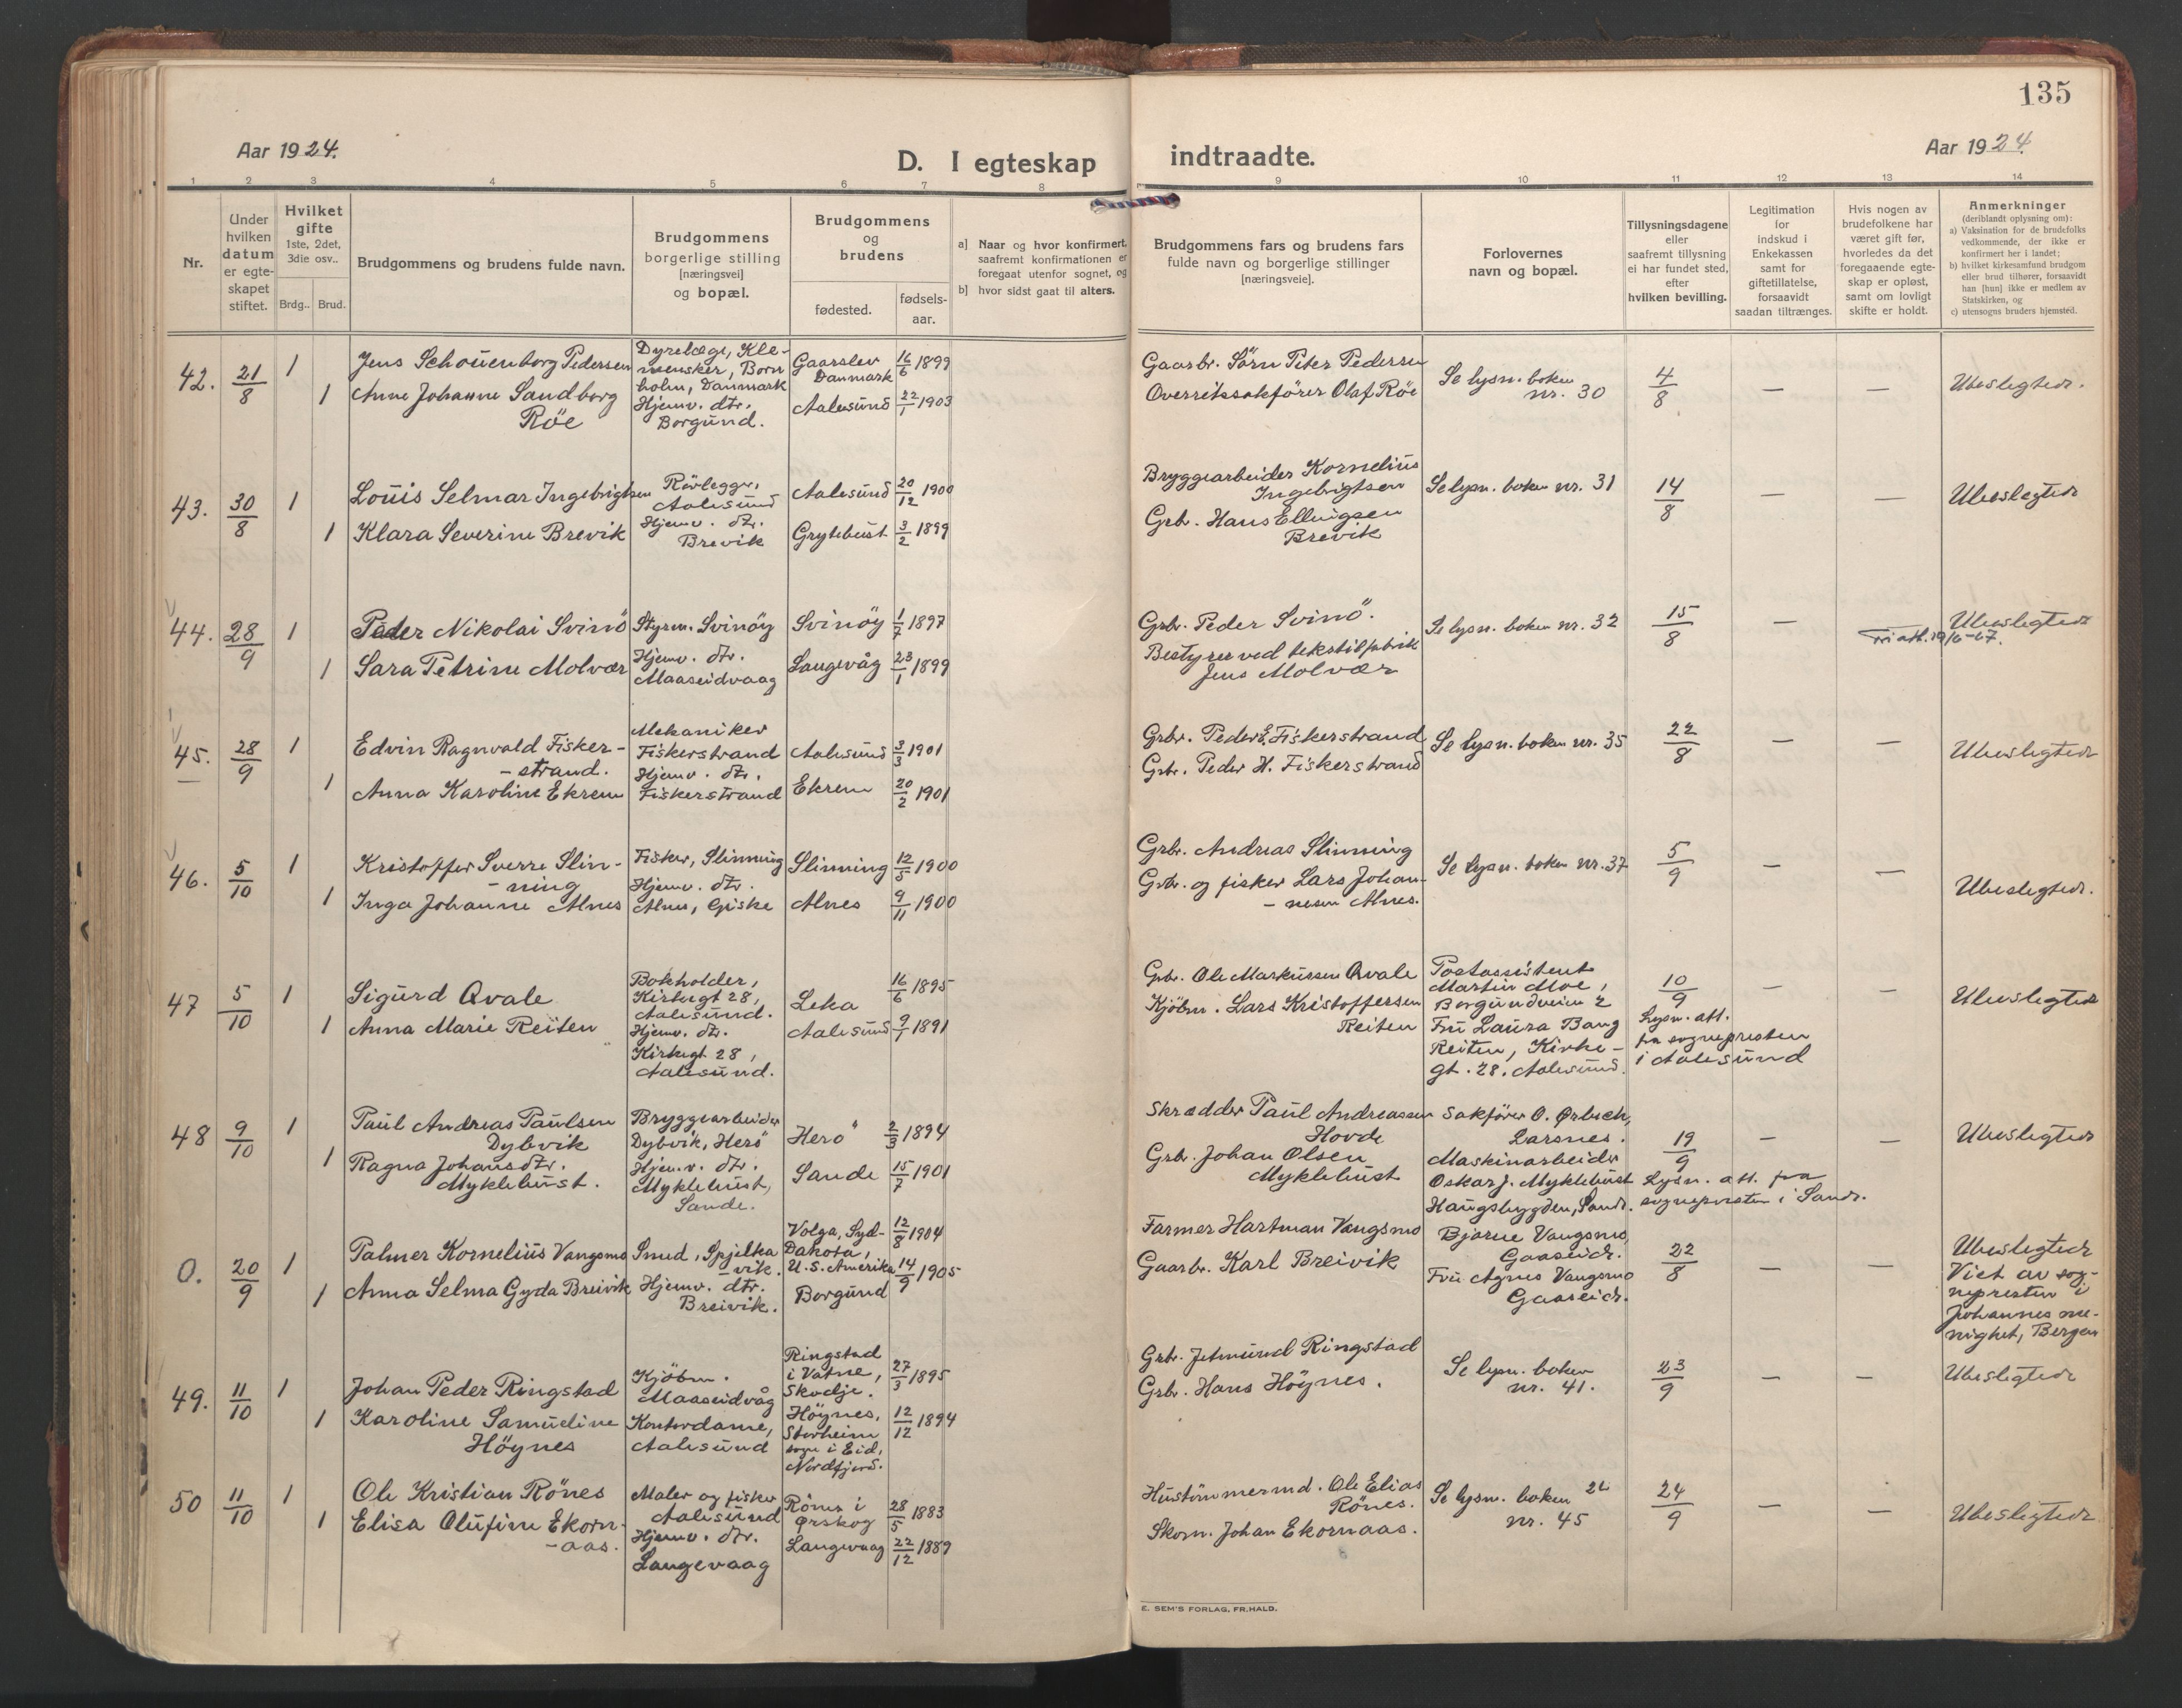 135
Aar 1924.
D. I egteskap indtraadte.
Aar 1924.
1 2 3 4 5 6 7 8 9 10 11 12 13 14
Nr.
Under
hvilken
datum
er egte-
skapet
stiftet.
Hvilket
gifte
1ste, 2det,
3die osv..
Brdg.. Brud.
Brudgommens og brudens fulde navn.
Brudgommens
borgerlige stilling
[næringsvei]
og bopæl.
Brudgommens
og
brudens
fødested.
fødsels-
aar.
a] Naar og hvor konfirmert,
saafremt konfirmationen er
foregaat utenfor sognet, og
b] hvor sidst gaat til alters.
Brudgommens fars og brudens fars
fulde navn og borgerlige stillinger
[næringsveie].
Forlovernes
navn og bopæl.
Tillysningsdagene
eller
saafremt tillysning
ei har fundet sted,
efter
hvilken bevilling.
Legitimation
for
indskud i
Enkekassen
samt for
giftetillatelse,
forsaavidt
saadan tiltrænges.
Hvis nogen av
brudefolkene har
været gift før,
hvorledes da det
foregaaende egte-
skap er opløst,
samt om lovligt
skifte er holdt.
Anmerkninger
(deriblandt oplysning om):
a) Vaksination for de brudefolks
vedkommende, der ikke er
konfirmert her i landet;
b) hvilket kirkesamfund brudgom
eller brud tilhører, forsaavidt
han [hun] ikke er medlem av
Statskirken, og
c) utensogns bruders hjemsted.
42. 21/8 1
Jens Schouenborg Pedersen
1 Anne Johanne Sandborg
Röe
Dyrelæge, Kle-
mensker, Born
holm, Danmark
Hjemv. dtr.
Borgund.
Gaarslev
Danmark
16/6 1899
Aalesund 22/1 1903
Gaarbr. Sörn Peter Pedersen
Overretssakförer Olaf Röe
Se lysn. boken
nr. 30
4/8
—
—
Ubeslegtede.
43. 30/8 1
Louis Selmar Ingebrigtsen
1 Klara Severine Brevik
Rörlegger,
Aalesund
Hjemv. dtr.
Brevik
Aalesund 20/12 1900
Grytebust 3/2 1899
Bryggearbeider Kornelius
Ingebrigtsen
Grb. Hans Ellingsen
Brevik
Se lysn. boken nr. 31
14/8
—
—
Ubeslegtede
44. 28/9 1
Peder Nikolai Svinö
1 Sara Petrine Molvær
Styrm. Svinöy
Hjemv. dtr.
Maaseidvaag
Svinöy 1/7 1897
Langevåg 23/1 1899
Grbr. Peder Svinö.
Bestyrer ved tekstilfabrik
Jens Molvær
Se lysn. boken nr. 32
15/8
—
Ubeslegtede
Fri att. 19/6-67.
45. 28/9 1
Edvin Ragnvald Fisker-
-strand.
1 Anna Karoline Ekrem
Mekaniker
Fiskerstrand
Hjemv. dtr.
Fiskerstrand
Aalesund 3/3 1901
Ekrem 20/2 1901
Grbr. Peder E. Fiskerstrand
Grbr. Peder H. Fiskerstrand
Se lysn. boken nr. 35
22/8
—
—
Ubeslegtede
46. 5/10 1
Kristoffer Sverre Slin-
-ning
1 Inga Johanne Alnes
Fisker, Slinning
Hjemv. dtr.
Alnes, Giske
Slinning 12/5 1900
Alnes 9/11 1900
Grbr. Andreas Slinning
Grbr. og fisker Lars Johan-
-nesen Alnes.
Se lysn. boken nr. 37
5/9
—
—
Ubeslegtede.
47 5/10 1
Sigurd Qvale
1 Anna Marie Reiten
Bokholder,
Kirkegt 28,
Aalesund.
Hjemv. dtr.
Kirkegt 28,
Aalesund.
Leka 16/6 1895
Aalesund 9/7 1891
Grbr. Ole Markussen Qvale
Kjöbm. Lars Kristoffersen
Reiten
Postassistent
Martin Moe,
Borgundveien 2
Fru Laura Bang
Reiten, Kirke-
gt. 28. Aalesund.
10/9
Lysn. att.
fra sognepresten
i Aalesund
—
—
Ubeslegtede
48 9/10 1
Paul Andreas Paulsen
Dybvik
1 Ragna Johansdtr.
Myklebust.
Bryggearbeider
Dybvik, Herö
Hjemv. dtr.
Myklebust,
Sande.
Herö 2/3 1894
Sande 15/7 1901
Skrædder Paul Andreassen
Hovde
Grb. Johan Olsen
Myklebust
Sakförer O. Ørbech,
Larsnes.
Maskinarbeider
Oskar J. Myklebust
Haugsbygden, Sande.
19/9
Lysn. att. fra
sognepresten i Sande.
—
—
Ubeslegtede
0. 20/9 1
Palmer Kornelius Vangsmo
1 Anna Selma Gyda Breivik
Smed, Spjelka
-vik.
Hjemv. dtr.
Breivik.
Volga, Syd-
Dakota,
U.S. Amerika
12/8 1904
Borgund 14/9 1905
Farmer Hartman Vangsmo
Gaarbr. Karl Breivik
Bjarne Vangsmo,
Gaaseide.
Fru Agnes Vangsmo
Gaaseide.
22/8
—
—
Ubeslegtede
Viet av sog-
nepresten i
Johannes me-
nighet, Bergen
49. 11/10 1
Johan Peder Ringstad
1 Karoline Samueline
Höynes
Kjöbm.
Maaseidvåg
Kontordame,
Aalesund
Ringstad
i Vatne,
Skodje.
27/3 1895
Höynes,
Storheim
sogn i Eid,
Nordfjord.
12/12 1894
Grbr. Jetmund Ringstad
Grbr. Hans Höynes.
Se lysn. boken
nr. 41.
23/9
—
—
Ubeslegtede
50 11/10 1
Ole Kristian Rönes
1 Elisa Olufine Ekorn-
-aas.
Maler og fisker
Aalesund
Hjemv. dtr.
Langevaag
Rönes i
Ørskog
28/5 1883
Langevaag 22/12 1889
Hustömmermd. Ole Elias
Rönes.
Skom. Johan Ekornaas.
Se lysn. boken
nr. 45
24/9
—
—
Ubeslegtede
E. SEM'S FORLAG, FR.HALD.